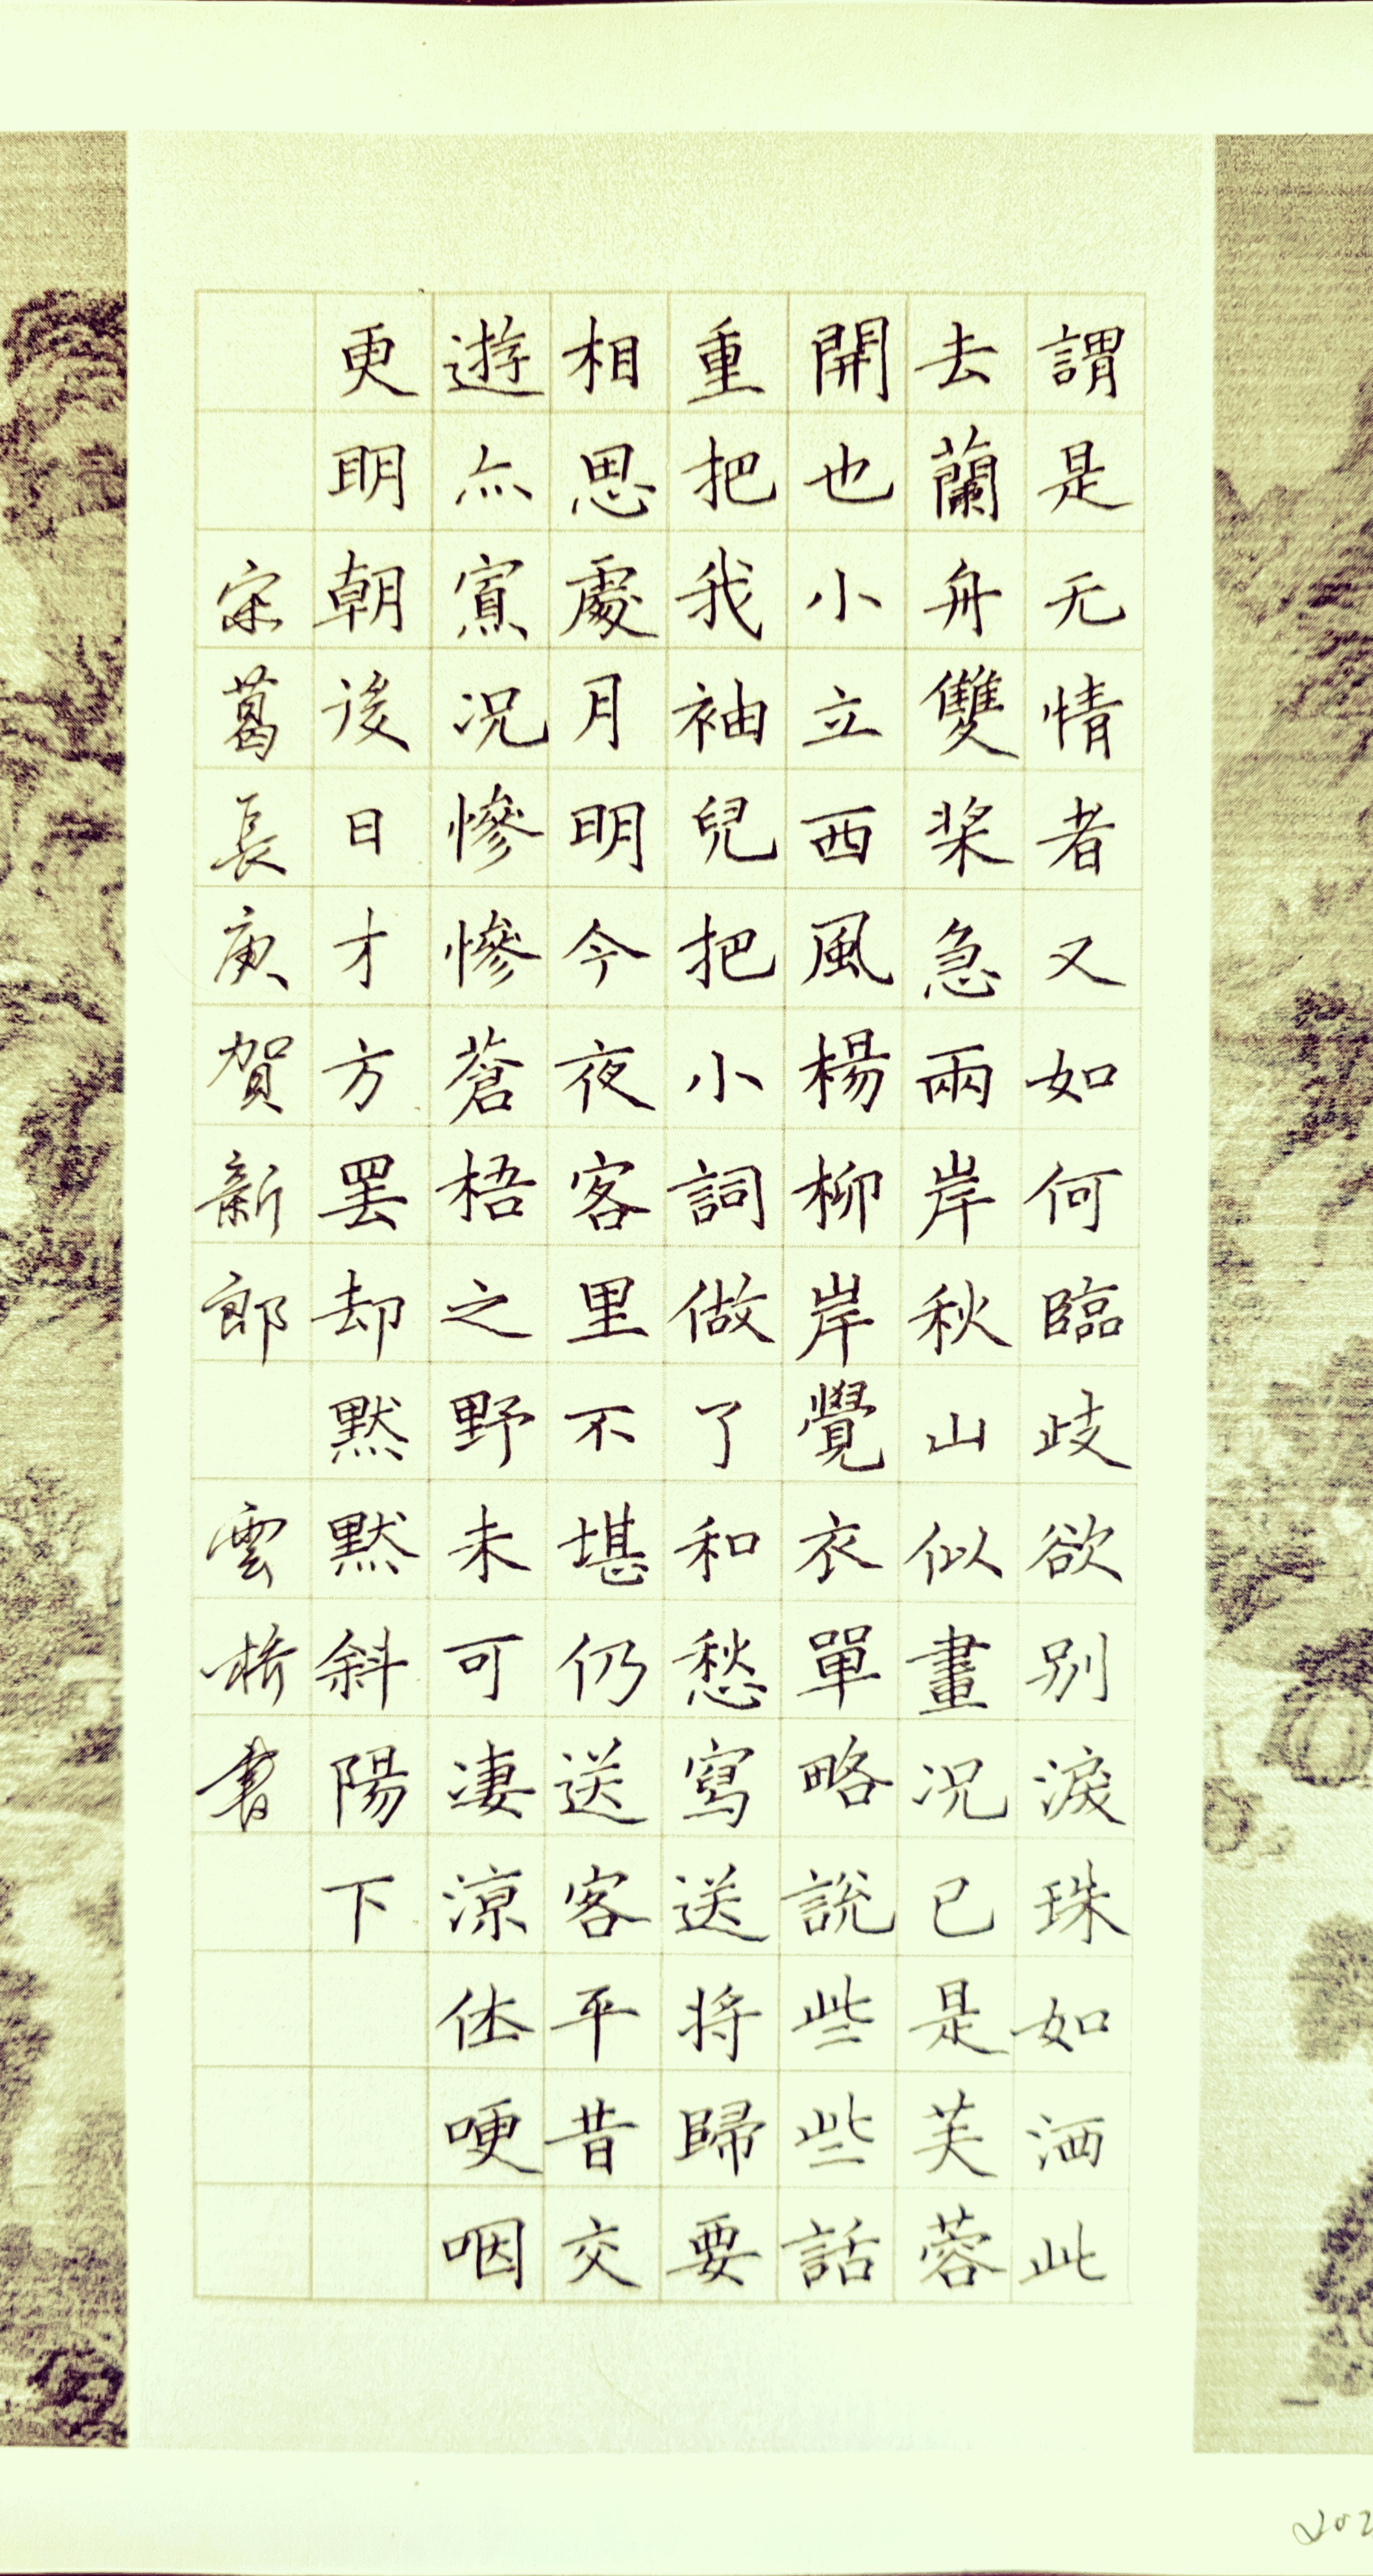 謂是无情者又如何臨歧欲别淚珠如洒此
去蘭舟雙桨急兩岸秋山似畫况已是芙蓉
開也小立西風楊柳岸覺衣單略說些些話
重把我袖兒把小詞做了和愁寫送將歸要
相思處月明今夜客里不堪仍送客平昔交
遊亦寡况慘慘蒼梧之野未可凄涼休哽咽
更明朝後日才方罢却黙黙斜陽下
宋葛長庚賀新郎
雲橋書
202